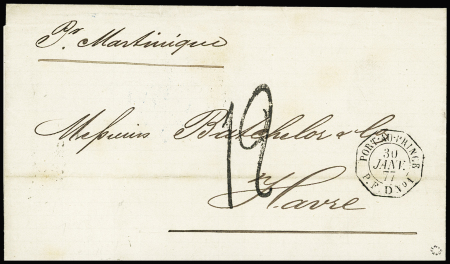 Pr. Martinique
Messieurs Batchelor & Co
12
Havre
PORT-AU-PRINCE
30
JANV.
77
P.F.D No 1